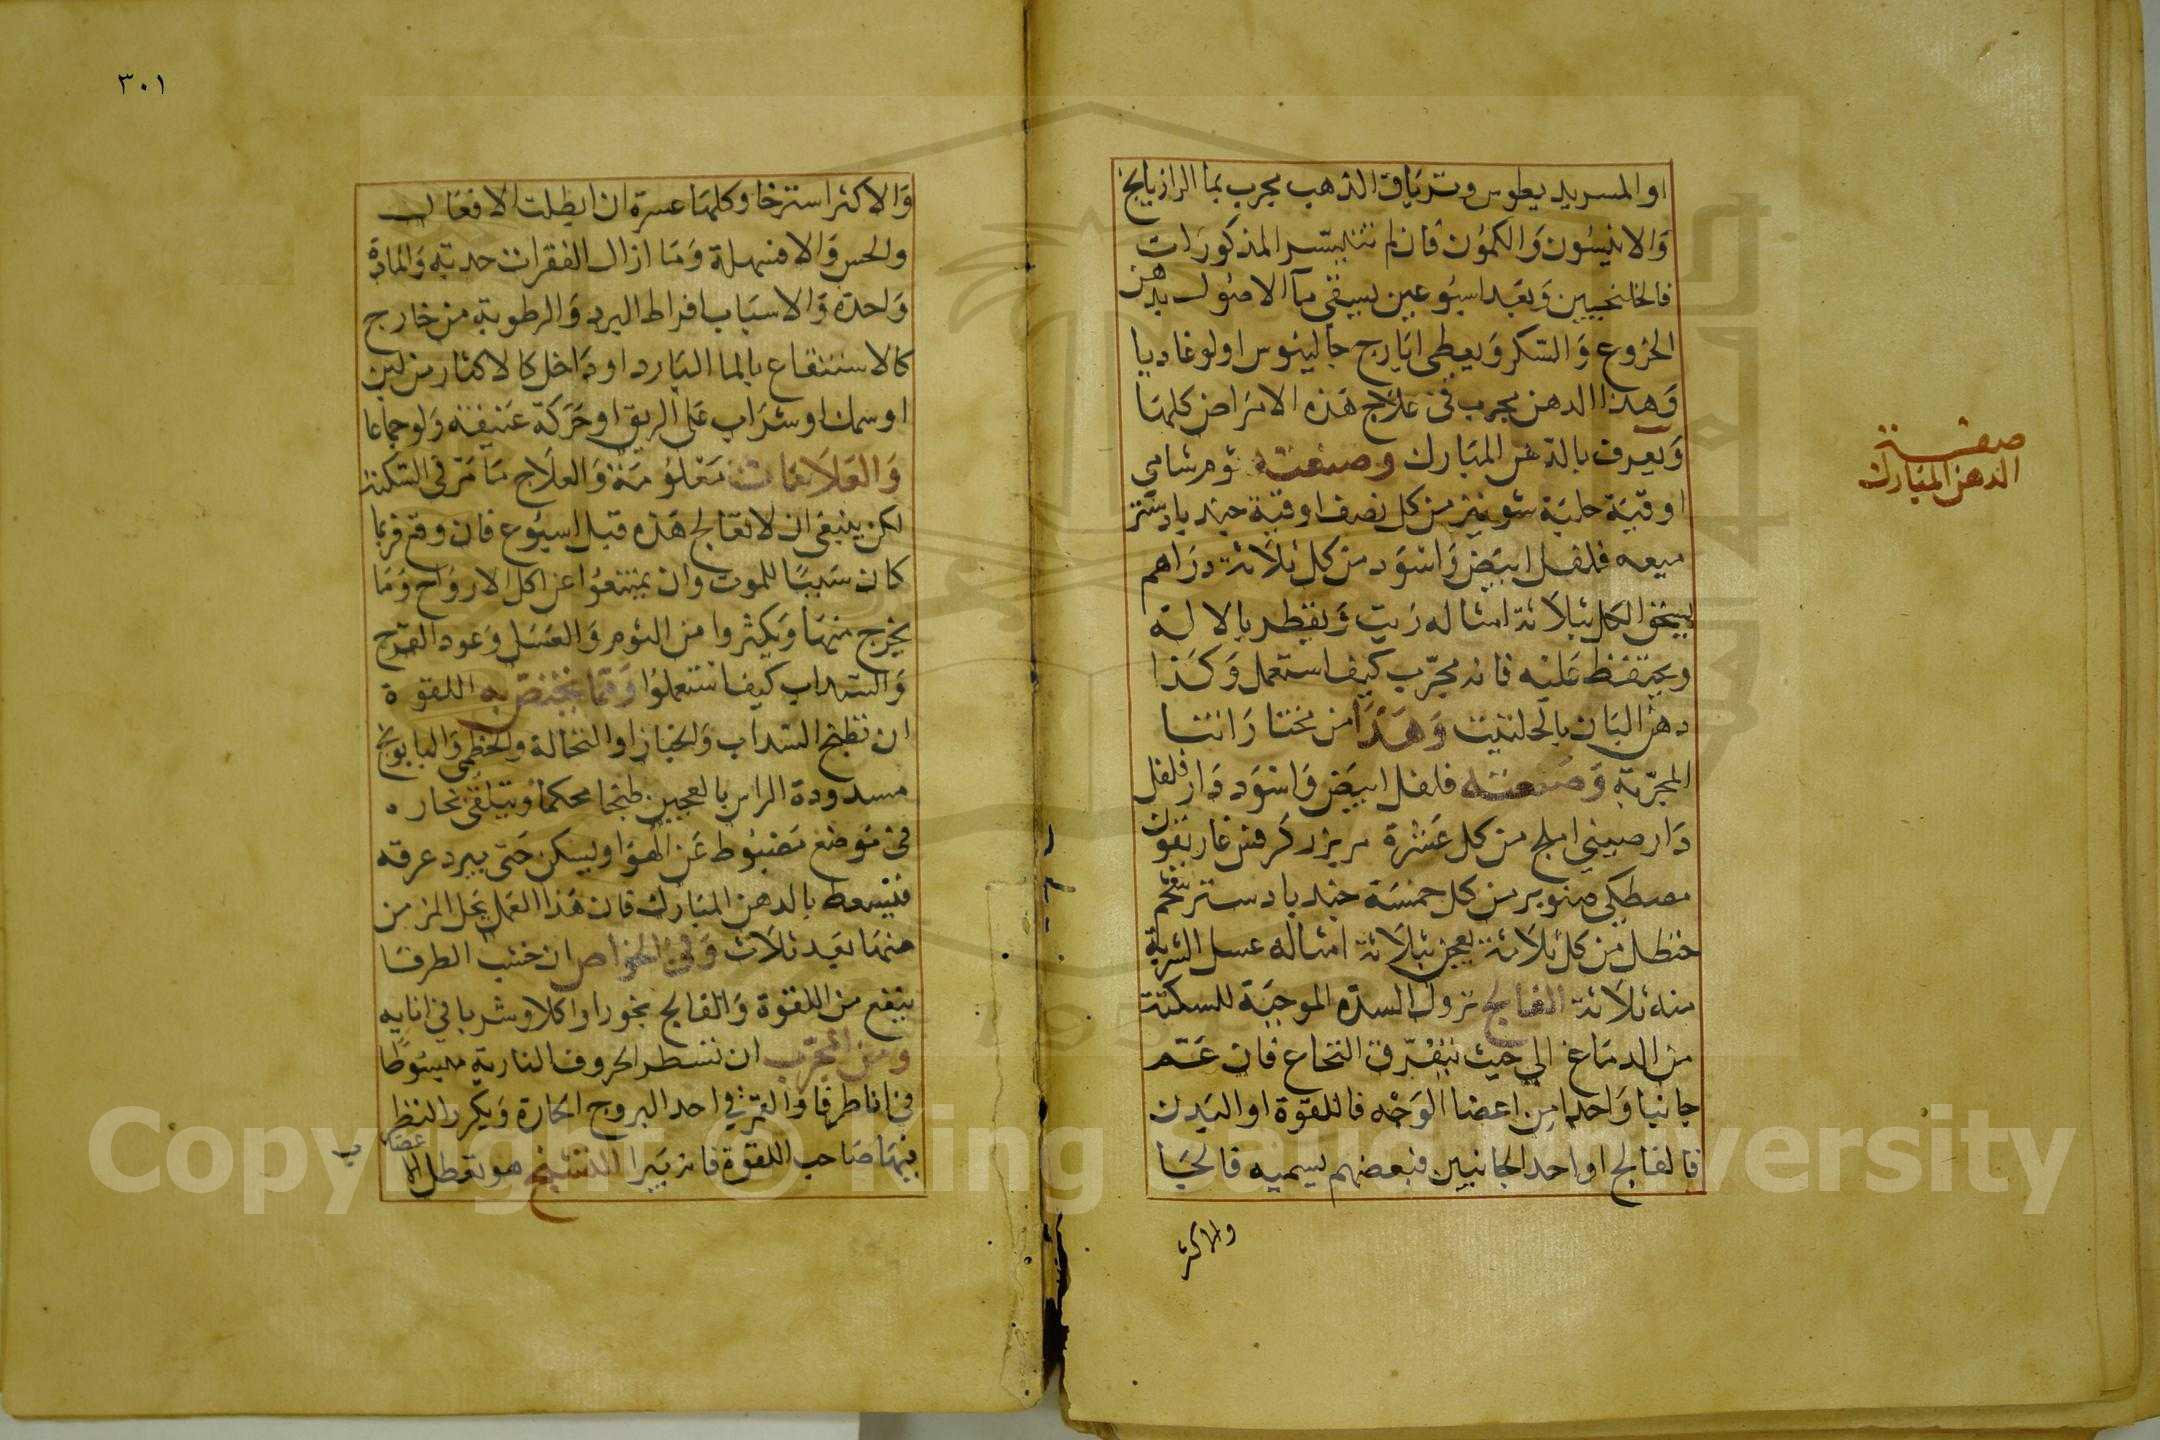 او المسريديطوس وترياق الذهب مجرب بما الرازيانج
والانيسون والكمون فان لم تتيسر المذكورات
فالخلنجبين وبعد اسبوعين يسقى مآ الاصول بدهن
الخروع والسكر ويعطى ايارج جالينوس او لوغاديا
وهذا الدهن مجرب في علاج هذه الامراض كلها
ويعرف بالدهن المبارك وصنعته ثوم شامي
اوقية حلبة شونيز من كل نصف اوقية جند بادستر
ميعه فلفل ابيض واسود من كل ثلاثة دراهم
يسحق الكل بثلاثة امثاله زيت ويقطر بالالة
ويحتفظ عليه فانه مجرب كيف استعمل وكذا
دهن البان بالحلتيت وهذا من مختاراتنا
المجربة وصنعته فلفل ابيض واسود دار فلفل
دار صيني املج من كل عشرة بزر كرفس غاريقون
مصطكى صنوبر من كل خمسة جند بادستر شحم
حنظل من كل ثلاثة يعجن بثلاثة امثاله عسل الشربة
منه ثلاثة الفالج نزول السدة الموجبة للسكتة
من الدماغ الى حيث تتفرق النخاع فان عم
جانبا واحدا من اعضا الوجه فاللقوة او البدن
فالفالج او احد الجانبين فبعضهم يسميه فالجا
والاكثر
صفة
الدهن المبارك
٣٠١
والاكثر استرخا وكلها عسرة ان ابطلت الافعال
والحس والا فسهلة وما ازال الفقرات حدبة والمادة
واحدة والاسباب افراط البرد والرطوبة من خارج
كالاستنقاع بالما البارد او داخل كالاكثار من لبن
او سمك او شراب على الريق او حركة عنيفة ولو جماعا
والعلامات معلومة والعلاج ما مر في السكتة
لكن ينبغي ان لا تعالج هذه قبل اسبوع فان وقع فربما
كان سببا للموت وان يمتنعوا عن اكل الارواح وما
يخرج منها ويكثروا من الثوم والعسل وعود القرح
والسداب كيف استعملوا ومما يختص به اللقوة
ان تطبخ السداب والخباز او النخالة والخطمي والبابونج
مسدودة الراس بالعجين طبخا محكما ويتلقى بخاره
في موضع مضبوط عن الهوا ويسكن حتى يبرد عرقه
فيسعط بالدهن المبارك فان هذا العمل يحل المزمن
منها بعد ثلاث وفي الخواص ان خشب الطرفا
ينفع من اللقوة والفالج بخورا واكلا وشربا في انايه
ومن المجرب ان تسطر الحروف النارية مبسوطا
في انا طرفا والقمر في احد البروج الحارة ويكرر النظر
فيها صاحب اللقوة فانه يبرا التشنج هو تعطل الاعضا